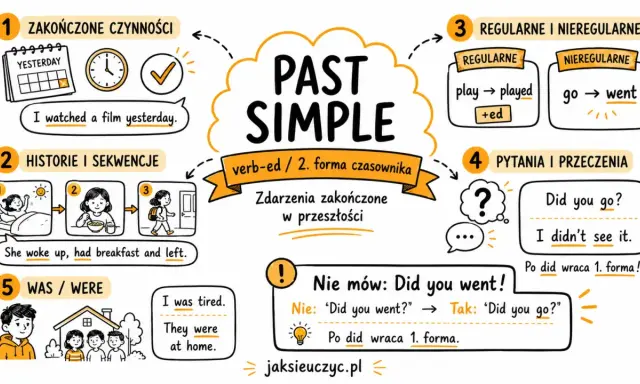 1 ZAKOŃCZONE CZYNNOŚCI
YESTERDAY
I watched a film yesterday.
2 HISTORIE I SEKWENCJE
1 2 3
She woke up, had breakfast and left.
5 WAS / WERE
I was tired.
They were
at home.
PAST
SIMPLE
verb-ed / 2. forma czasownika
Zdarzenia zakończone
w przeszłości
3 REGULARNE I NIEREGULARNE
REGULARNE
play → played
+ed
NIEREGULARNE
go → went
4 PYTANIA I PRZECZENIA
?
Did you go?
I didn't see it.
Po did wraca 1. forma!
!
Nie mów: Did you went!
Nie: 'Did you went?" → Tak: "Did you go?"
Po did wraca 1. forma.
jaksieuczyc.pl